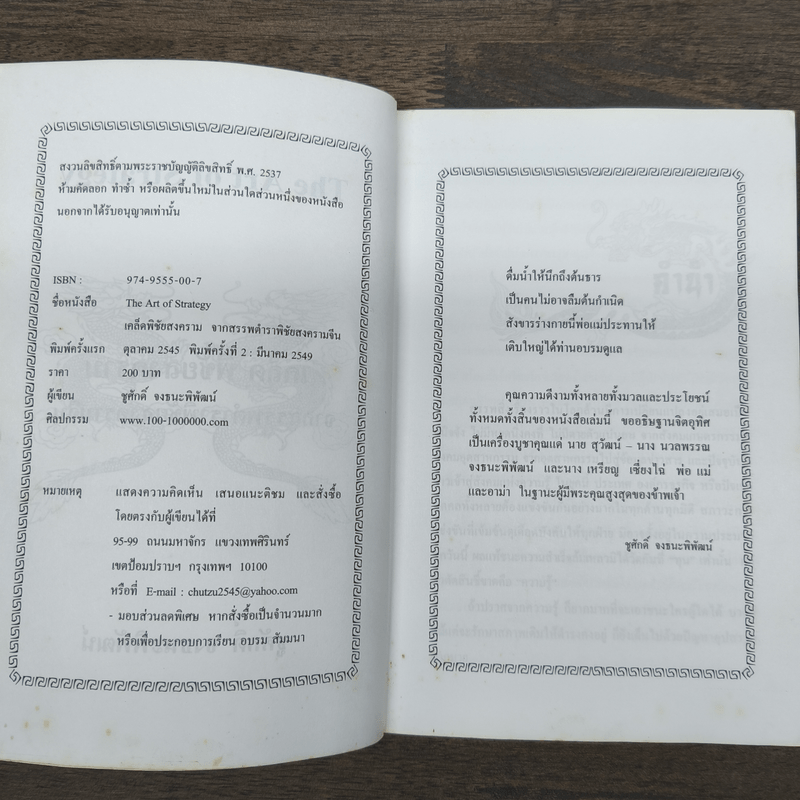 สงวนลิขสิทธิ์ตามพระราชบัญญัติลิขสิทธิ์ พ.ศ. 2537
ห้ามคัดลอก ทำซ้ำ หรือผลิตขึ้นใหม่ในส่วนใดส่วนหนึ่งของหนังสือ
นอกจากได้รับอนุญาตเท่านั้น
ISBN : 974-9555-00-7
ชื่อหนังสือ The Art of Strategy
เคล็ดพิชัยสงคราม จากสรรพตำราพิชัยสงครามจีน
พิมพ์ครั้งแรก ตุลาคม 2545 พิมพ์ครั้งที่ 2 : มีนาคม 2549
ราคา 200 บาท
ผู้เขียน ชูศักดิ์ จงธนะพิพัฒน์
ศิลปกรรม www.100-1000000.com
หมายเหตุ แสดงความคิดเห็น เสนอแนะติชม และสั่งซื้อ
โดยตรงกับผู้เขียนได้ที่
95-99 ถนนมหาจักร แขวงเทพศิรินทร์
เขตป้อมปราบฯ กรุงเทพฯ 10100
หรือที่ E-mail : chutzu2545@yahoo.com
- มอบส่วนลดพิเศษ หากสั่งซื้อเป็นจำนวนมาก
หรือเพื่อประกอบการเรียน อบรม สัมมนา
ดื่มน้ำให้นึกถึงต้นธาร
เป็นคนไม่อาจลืมต้นกำเนิด
สังขารร่างกายนี้พ่อแม่ประทานให้
เติบใหญ่ได้ท่านอบรมดูแล
คุณความดีงามทั้งหลายทั้งมวลและประโยชน์
ทั้งหมดทั้งสิ้นของหนังสือเล่มนี้ ขออธิษฐานจิตอุทิศ
เป็นเครื่องบูชาคุณแด่ นาย สุวัฒน์ – นาง นวลพรรณ
จงธนะพิพัฒน์ และนาง เหรียญ เซี่ยงไฉ่ พ่อ แม่
และอาม่า ในฐานะผู้มีพระคุณสูงสุดของข้าพเจ้า
ชูศักดิ์ จงธนะพิพัฒน์